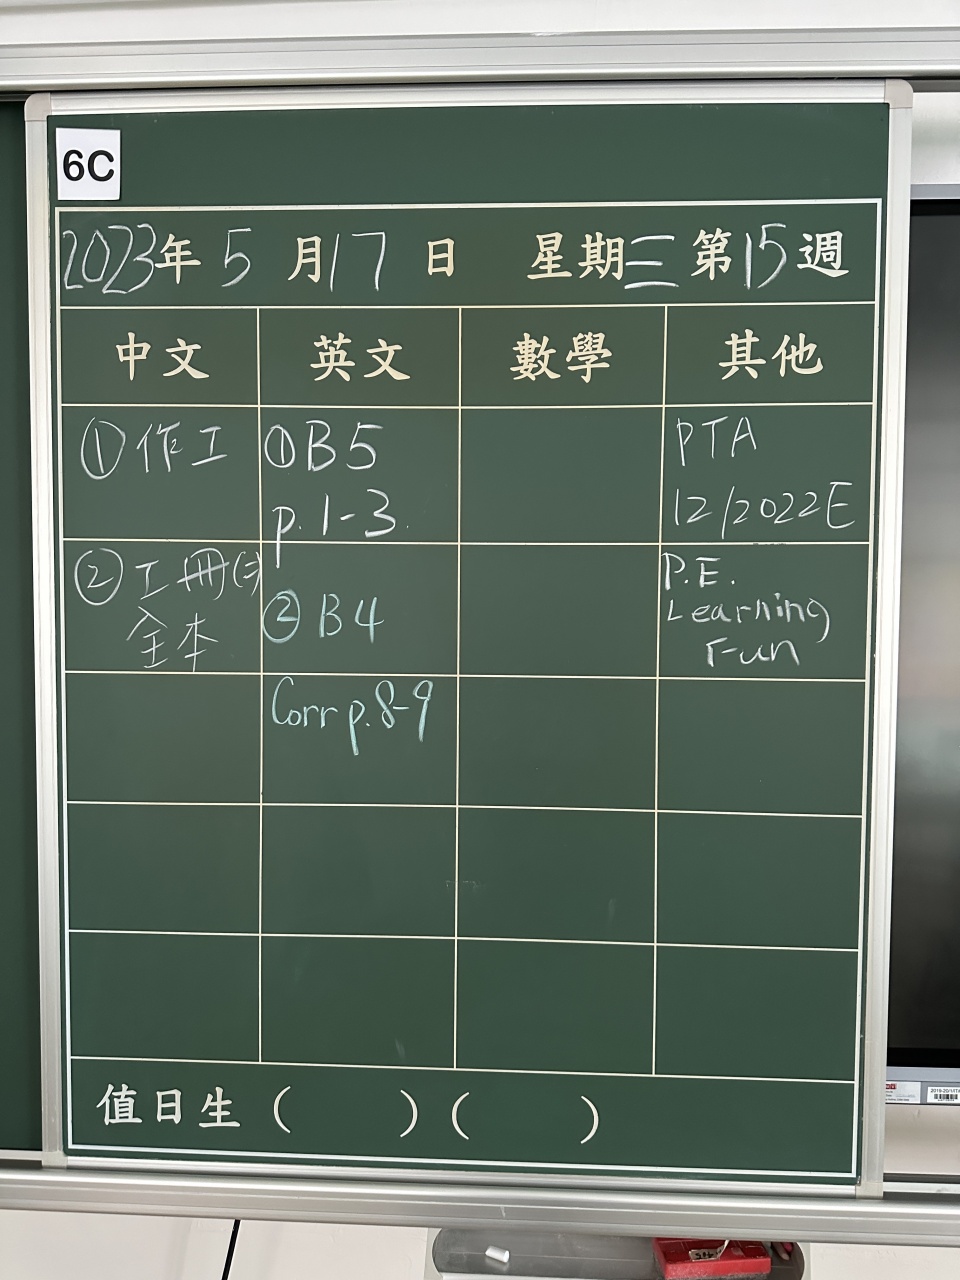 6C
2023年5月17日 星期三 第15週
中文 英文 數學 其他
①作工
①B5
p.1-3.
PTA
12/2022E
②工冊(二)
全本
②B4
P.E.
Learning
Fun
Corr p.8-9
值日生 ( ) ( )